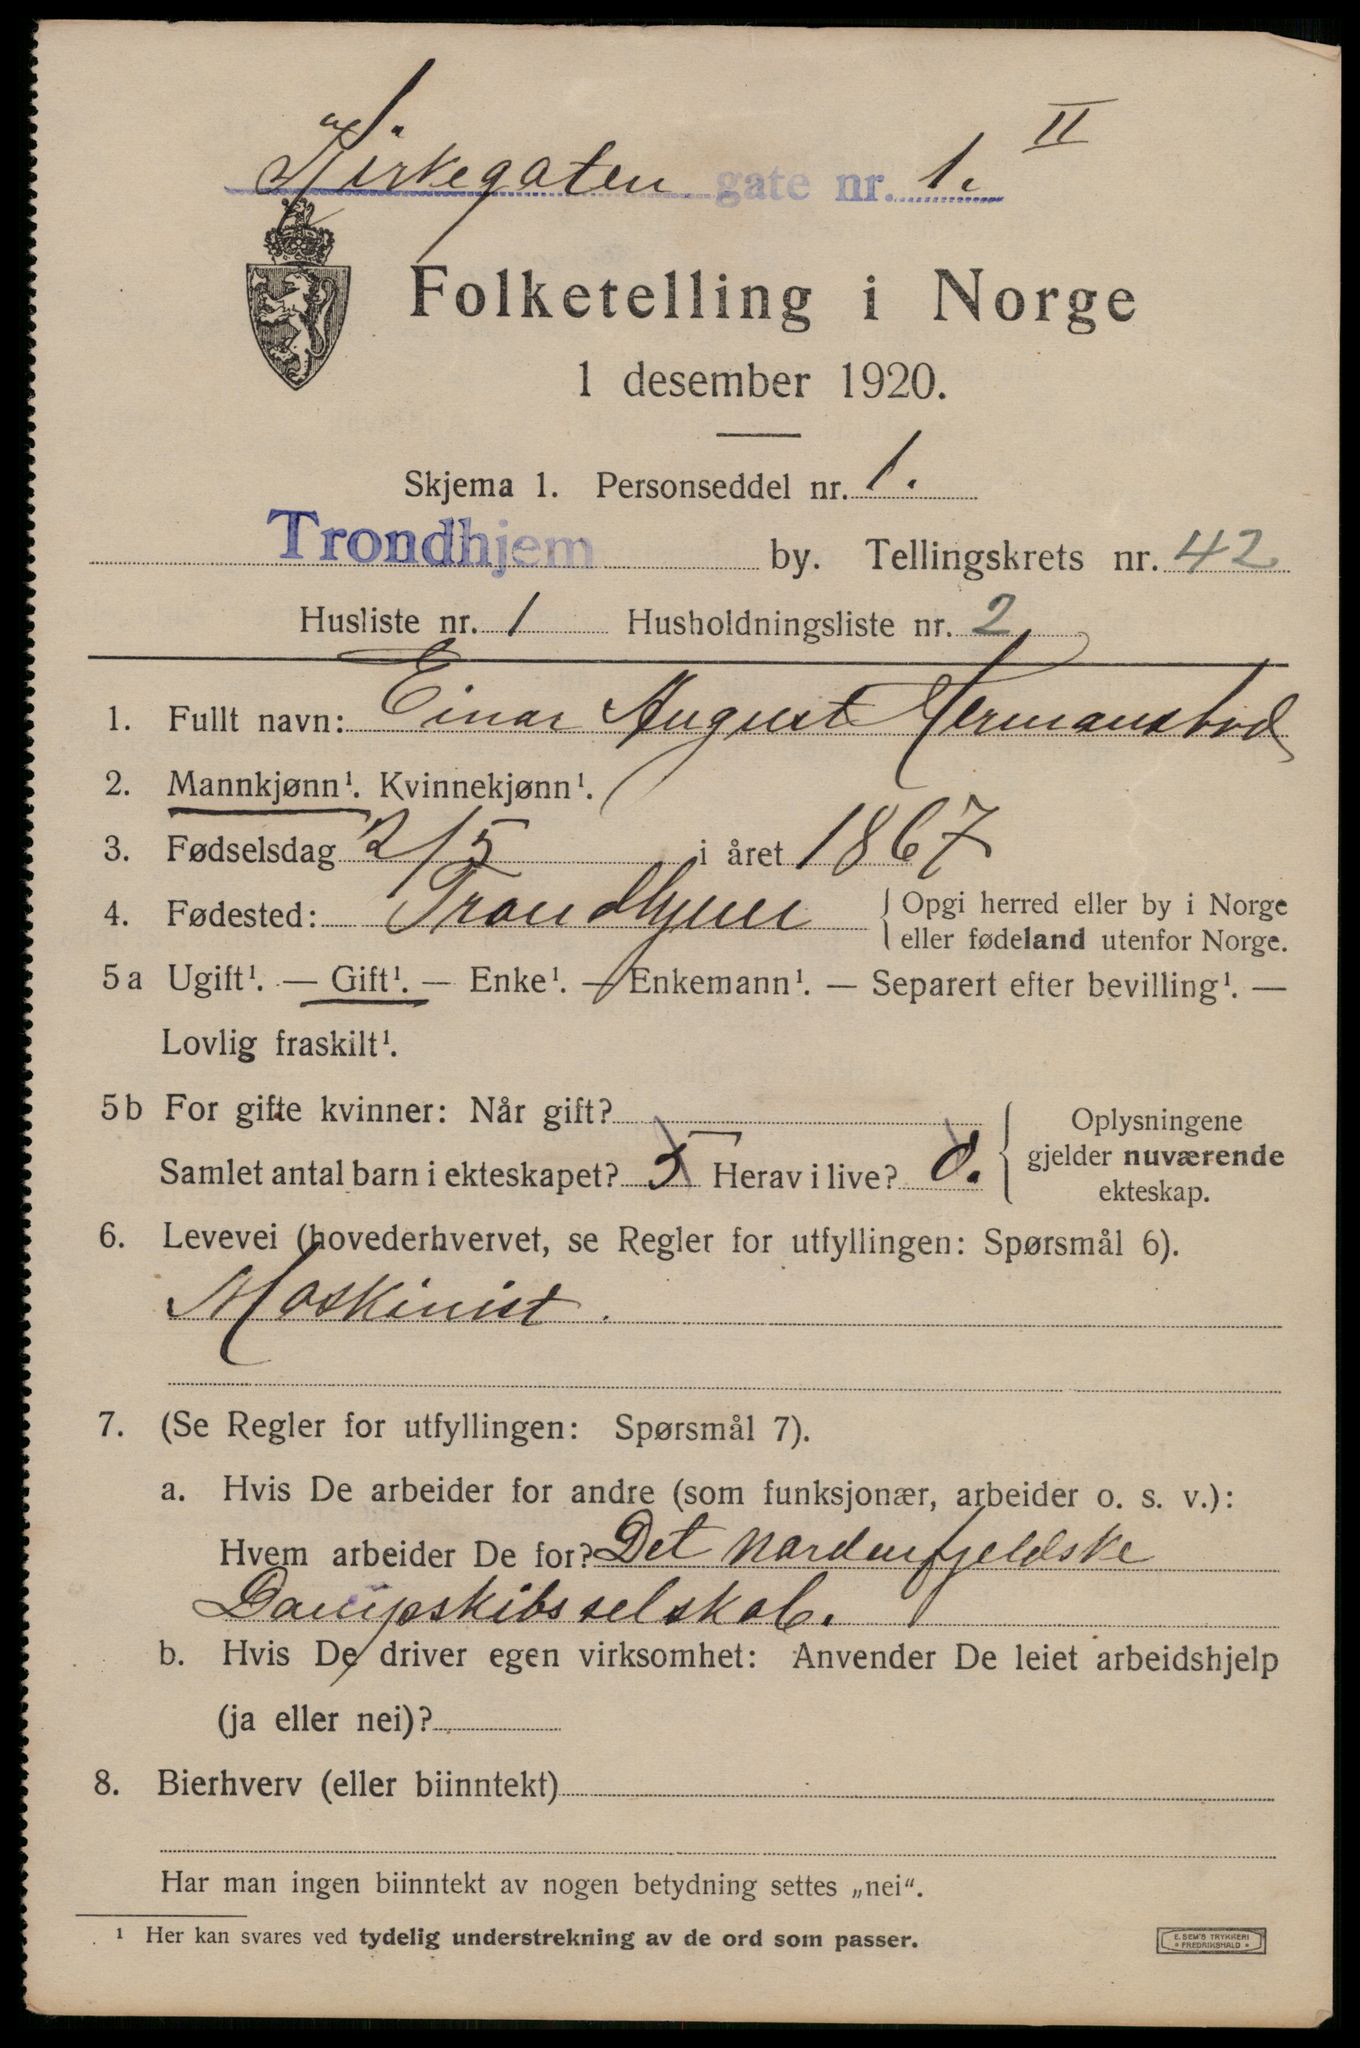 Kirkegaten gate nr. 1. II
Folketelling i Norge
1 desember 1920.
Skjema 1. Personseddel nr. 1.
Trondhjem by. Tellingskrets nr. 42
Husliste nr. 1 Husholdningsliste nr. 2
1. Fullt navn: Einar August Hermanstad
2. Mannkjønn¹. Kvinnekjønn¹.
3. Fødselsdag 2/5 i året 1867
4. Fødested: Trondhjem { Opgi herred eller by i Norge
eller fødeland utenfor Norge.
5a Ugift¹. — Gift¹. — Enke¹. — Enkemann¹. — Separert efter bevilling¹. —
Lovlig fraskilt¹.
5b For gifte kvinner: Når gift?
Samlet antal barn i ekteskapet? 5 Herav i live?
{ Oplysningene
gjelder nuværende
ekteskap.
6. Levevei (hovederhvervet, se Regler for utfyllingen: Spørsmål 6).
Maskinist.
7. (Se Regler for utfyllingen: Spørsmål 7).
a. Hvis De arbeider for andre (som funksjonær, arbeider o. s. v.):
Hvem arbeider De for? Det nordenfjeldske
Dampskibsselskab.
b. Hvis De driver egen virksomhet: Anvender De leiet arbeidshjelp
(ja eller nei)?
8. Bierhverv (eller biinntekt)
Har man ingen biinntekt av nogen betydning settes „nei“.
¹ Her kan svares ved tydelig understrekning av de ord som passer.
E. SEM'S TRYKKERI
* FREDRIKSHALD *